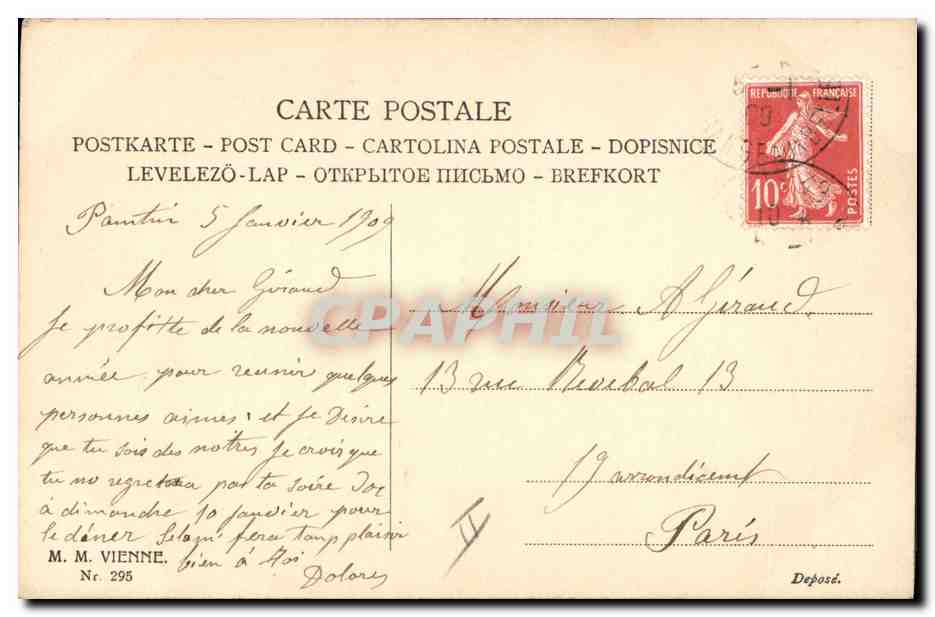 CARTE POSTALE
POSTKARTE – POST CARD – CARTOLINA POSTALE – DOPISNICE
LEVELEZÖ-LAP – ОТКРЫТОЕ ПИСЬМО – BREFKORT
REPUBLIQUE FRANÇAISE
10c
POSTES
Pantin 5 Janvier 1909
Mon cher Géraud
Je profitte de la nouvelle
année pour reunir quelques
personnes aimes et je Désire
que tu sois des notres je crois que
tu no regrettera pas ta soire Doc
à dimandre 10 janvier pour
le dáner Sela m' fera tamp plaisir
bien à toi
Dolores
Monsieur A Géraud
13 rue 13
19 arrondicent
Paris
CPAPHIL
M. M. VIENNE.
Nr. 295
Deposé.